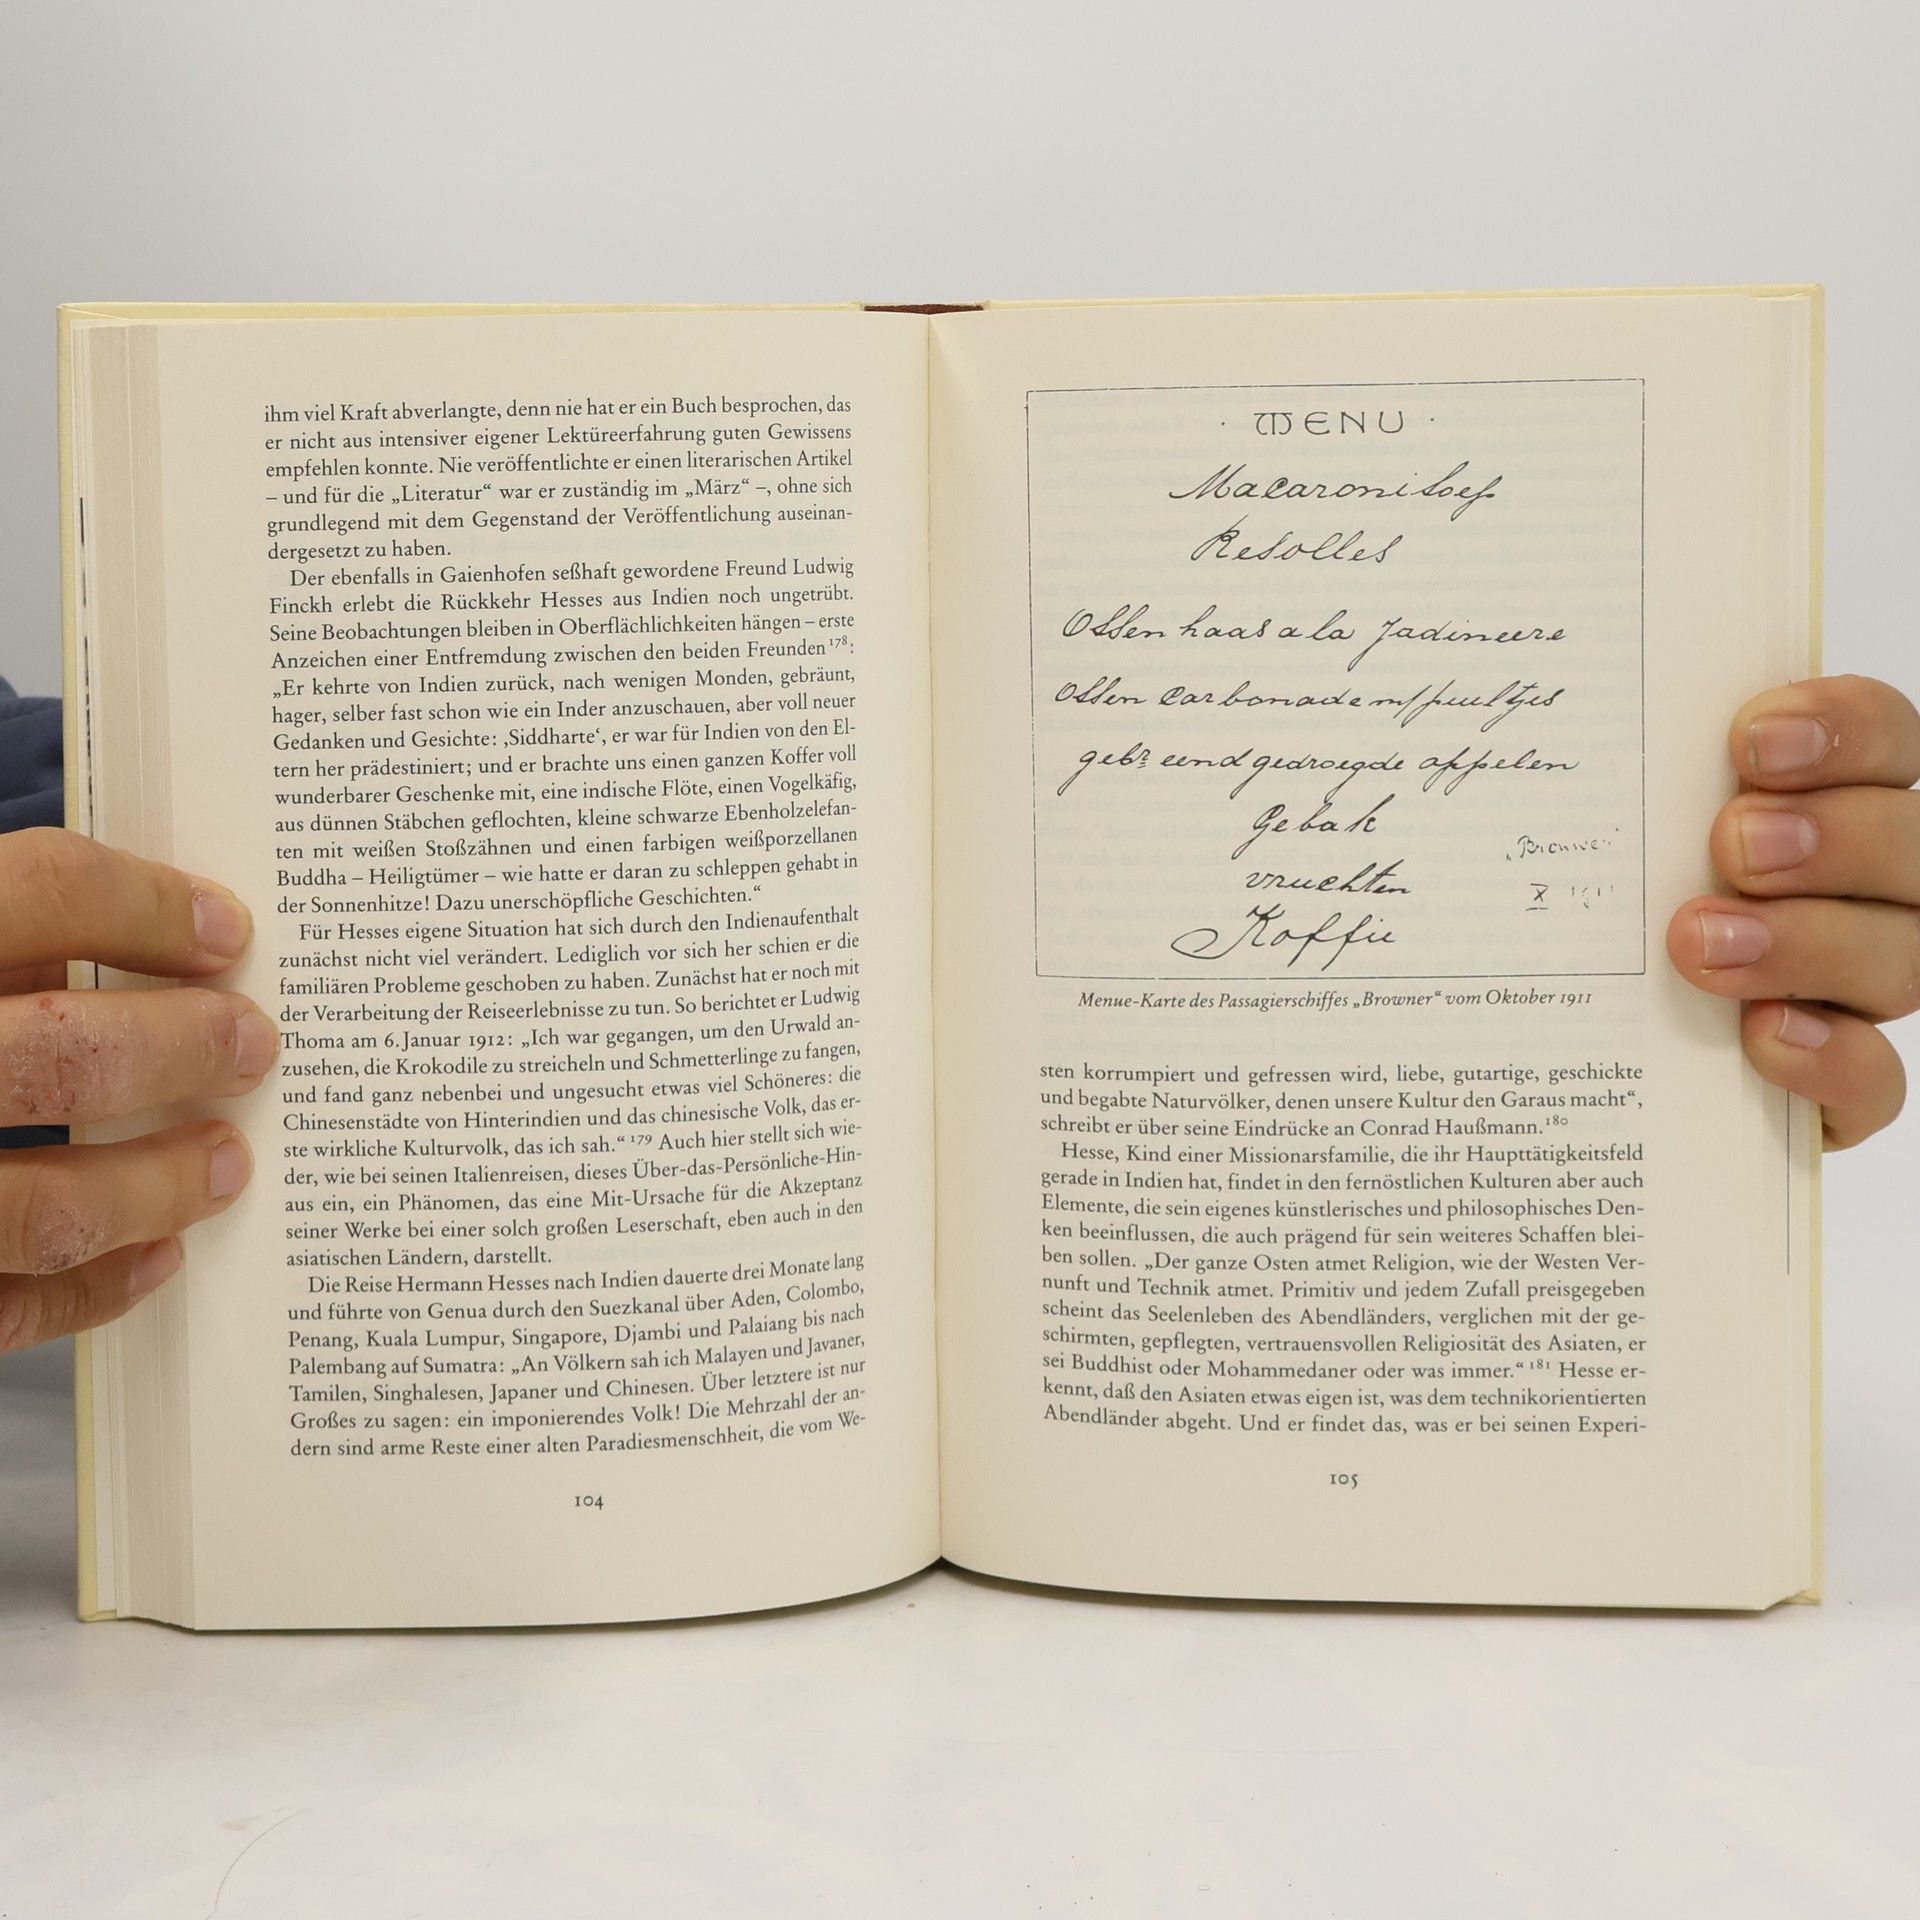 ihm viel Kraft abverlangte, denn nie hat er ein Buch besprochen, das
er nicht aus intensiver eigener Lektüreerfahrung guten Gewissens
empfehlen konnte. Nie veröffentlichte er einen literarischen Artikel
– und für die „Literatur“ war er zuständig im „März“ –, ohne sich
grundlegend mit dem Gegenstand der Veröffentlichung auseinan-
dergesetzt zu haben.
Der ebenfalls in Gaienhofen seßhaft gewordene Freund Ludwig
Finckh erlebt die Rückkehr Hesses aus Indien noch ungetrübt.
Seine Beobachtungen bleiben in Oberflächlichkeiten hängen – erste
Anzeichen einer Entfremdung zwischen den beiden Freunden¹⁷⁸:
„Er kehrte von Indien zurück, nach wenigen Monden, gebräunt,
hager, selber fast schon wie ein Inder anzuschauen, aber voll neuer
Gedanken und Gesichte: ‚Siddharte‘, er war für Indien von den El-
tern her prädestiniert; und er brachte uns einen ganzen Koffer voll
wunderbarer Geschenke mit, eine indische Flöte, einen Vogelkäfig,
aus dünnen Stäbchen geflochten, kleine schwarze Ebenholzelefan-
ten mit weißen Stoßzähnen und einen farbigen weißporzellanen
Buddha – Heiligtümer – wie hatte er daran zu schleppen gehabt in
der Sonnenhitze! Dazu unerschöpfliche Geschichten.“
Für Hesses eigene Situation hat sich durch den Indienaufenthalt
zunächst nicht viel verändert. Lediglich vor sich her schien er die
familiären Probleme geschoben zu haben. Zunächst hat er noch mit
der Verarbeitung der Reiseerlebnisse zu tun. So berichtet er Ludwig
Thoma am 6. Januar 1912: „Ich war gegangen, um den Urwald an-
zusehen, die Krokodile zu streicheln und Schmetterlinge zu fangen,
und fand ganz nebenbei und ungesucht etwas viel Schöneres: die
Chinesenstädte von Hinterindien und das chinesische Volk, das er-
ste wirkliche Kulturvolk, das ich sah.“¹⁷⁹ Auch hier stellt sich wie-
der, wie bei seinen Italienreisen, dieses Über-das-Persönliche-Hin-
aus ein, ein Phänomen, das eine Mit-Ursache für die Akzeptanz
seiner Werke bei einer solch großen Leserschaft, eben auch in den
asiatischen Ländern, darstellt.
Die Reise Hermann Hesses nach Indien dauerte drei Monate lang
und führte von Genua durch den Suezkanal über Aden, Colombo,
Penang, Kuala Lumpur, Singapore, Djambi und Palaiang bis nach
Palembang auf Sumatra: „An Völkern sah ich Malayen und Javaner,
Tamilen, Singhalesen, Japaner und Chinesen. Über letztere ist nur
Großes zu sagen: ein imponierendes Volk! Die Mehrzahl der an-
dern sind arme Reste einer alten Paradiesmenschheit, die vom We-
104
· MENU ·
Macaroni soep
Resolles
Ossen haas a la Jadineere
Ossen Carbonade m/puultjes
gebr. eend gedroegde appelen
Gebak
vruchten
Koffie
„Brouwer“
X
Menue-Karte des Passagierschiffes „Browner“ vom Oktober 1911
sten korrumpiert und gefressen wird, liebe, gutartige, geschickte
und begabte Naturvölker, denen unsere Kultur den Garaus macht“,
schreibt er über seine Eindrücke an Conrad Haußmann.¹⁸⁰
Hesse, Kind einer Missionarsfamilie, die ihr Haupttätigkeitsfeld
gerade in Indien hat, findet in den fernöstlichen Kulturen aber auch
Elemente, die sein eigenes künstlerisches und philosophisches Den-
ken beeinflussen, die auch prägend für sein weiteres Schaffen blei-
ben sollen. „Der ganze Osten atmet Religion, wie der Westen Ver-
nunft und Technik atmet. Primitiv und jedem Zufall preisgegeben
scheint das Seelenleben des Abendländers, verglichen mit der ge-
schirmten, gepflegten, vertrauensvollen Religiosität des Asiaten, er
sei Buddhist oder Mohammedaner oder was immer.“¹⁸¹ Hesse er-
kennt, daß den Asiaten etwas eigen ist, was dem technikorientierten
Abendländer abgeht. Und er findet das, was er bei seinen Experi-
105